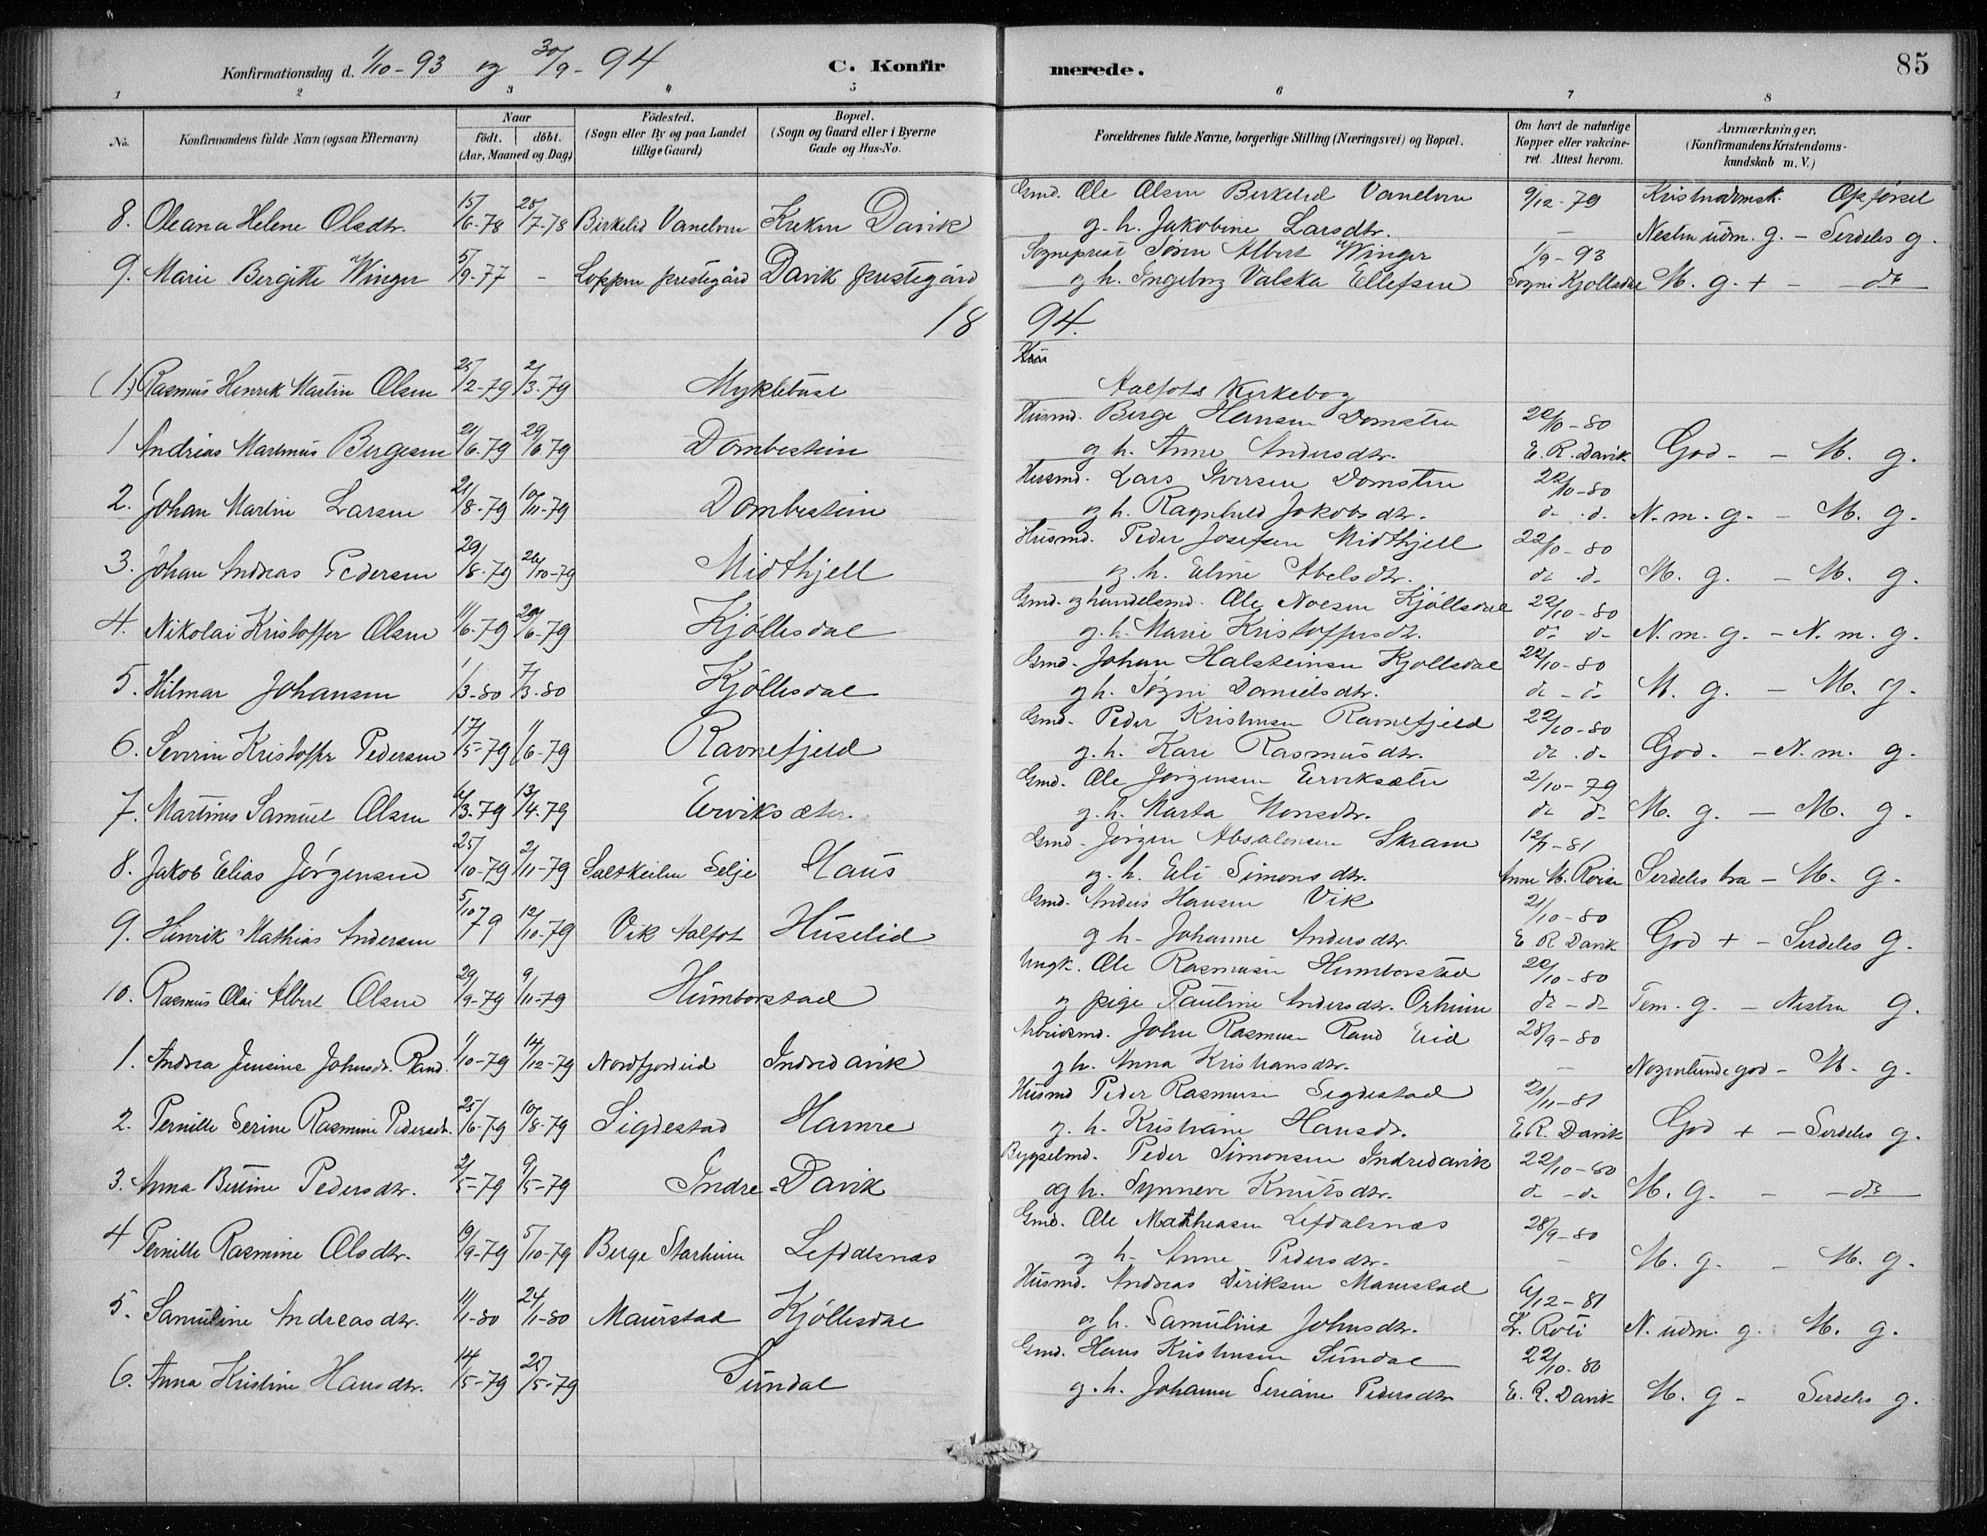 Konfirmationsdag d. 1/10-93 og 30/9-94 C. Konfirmerede. 85
1 2 3 4 5 6 7 8
No. Konfirmandens fulde Navn (ogsaa Efternavn)
Naar födt. döbt. (Aar, Maaned og Dag)
Födested. (Sogn eller By og paa Landet tillige Gaard)
Bopæl. (Sogn og Gaard eller i Byerne Gade og Hus-No.
Forældrenes fulde Navne, borgerlige Stilling (Næringsvei) og Bopæl.
Om havt de naturlige Kopper eller vakcineret. Attest herom.
Anmærkninger. (Konfirmandens Kristendomskundskab m. V.)
8. Oleana Helene Olsdtr. 15/6-78 28/7-78 Birkelid Vanelven Davik Gmd. Ole Olsen Birkelid Vanelven 9/12-79 Kristendomsk. Opførsel
g. h. Jakobine Larsdtr. — Nesten udm. g. - Serdeles g.
9. Marie Bergitte Winger 5/9-77 - Loppen prestegård Davik prestegård Sogneprest Søren Albert Winger 1/9-93
og h. Ingeborg Valska Ellefsen Søgni Kjøllsdal M. g. + - do
18 94.
(1.) Rasmus Henrik Martin Olsen 25/2-79 2/3-79 Myklebust Aalfots Kirkebog
1 Andrias Martinus Bergesen 21/6-79 29/6-79 Dombestein Husmd. Berge Hansen Domsten 22/10-80
og h. Anne Andersdtr. E. R. Davik God - - M. g.
2. Johan Martin Larsen 21/8-79 10/11-79 Dombestein Husmd. Lars Iversen Domsten 22/10-80
og h. Ragnhild Jakobsdtr. do. do. N. m. g. - M. g.
3. Johan Andreas Pedersen 29/8-79 26/10-79 Midthjell Husmd. Peder Josefsen Midthjell 22/10-80
og h. Eline Abelsdtr. do. do M. g. - M. g.
4. Nikolai Kristoffer Olsen 11/6-79 29/6-79 Kjöllesdal Gmd. og handelsmd. Ole Noesen Kjöllsdal 22/10-80
g. h. Marie Kristoffersdt. do do N. m. g. - N. m. g.
5. Hilmar Johansen 1/3-80 7/3-80 Kjöllesdal Gmd. Johan Halsteinsen Kjøllsdal 22/10-80
g h. Søgni Danielsdtr. do - do M. g. - M. g.
6. Severin Kristoffer Pedersen 17/5-79 1/6-79 Ravnefjeld Gmd. Peder Kristensen Ravnefjeld 22/10-80
g. h. Kari Rasmusdtr. do. do. God. - N. m. g.
7. Martinus Samuel Olsen 6/3-79 13/4-79 Erviksæter. Gmd. Ole Jørgensen Erviksæter 2/10-79
g. h. Marta Monsdtr. do do M. g. - M. g.
8. Jakob Elias Jörgensen 25/10-79 2/11-79 Selje Haus Gmd. Jörgen Absalonsen Skram 12/7-81
og. h. Eli Simonsdtr. Anne M. Serdeles bra - M. g.
9. Henrik Mathias Andersen 5/10 79 12/10-79 Vik Aalfot Huselid Gmd. Anders Hansen Vik 21/10-80
g h. Johanne Andersdtr. E R Davik God + - Serdeles g.
10. Rasmus Olai Albert Olsen 29/9-79 9/11-79 Humborstad Ungk. Ole Rasmusen Humborstad 22/10-80
og pige Pauline Andersdtr. Orheim do - do Tem. g. - Nesten g.
1. Andrea Jensine Johnsdt. Rand. 1/10-79 14/12-79 Nordfjordeid Indredavik Arbeidsmd. John Rasmusen Rand Eid 28/9-80
g h. Anna Kristiansdtr. - Nogenlunde god - M. g.
2. Pernille Serine Rasmine Pedersdt. 25/6-79 10/8-79 Sigdestad Hamre Husmd Peder Rasmusen Sigdestad 21/11-81
g. h. Kristiane Hansdt. E R. Davik God + - Serdeles g.
3. Anna Bertine Pedersdtr. 2/5-79 9/5-79 Indre-Davik Bygselmd. Peder Simonsen Indredavik 22/10-80
og h. Synneve Knutsdtr. do - do M. g. - do
4 Pernille Rasmine Olsdtr. 19/9-79 5/10-79 Berge Starheim Lefdalsnæs Gmd. Ole Matheasen Lefdalsnæs 28/9-80
og h. Anne Pedersdtr. - M. g. - M. g.
5. Samuline Andreasdtr. 11/1-80 24/1-80 Maurstad Kjöllesdal Husmd. Andreas Diriksen Maurstad 6/12-81
og h. Samuline Johnsdtr. L. Roti N. udm. g. M. g.
6. Anna Kristine Hansdtr. 14/5-79 25/5-79 Sundal Gmd. Hans Kristensen Sundal 22/10-80
g. h. Johanne Seriane Pedersdtr E. R. Davik M. g - Serdeles g.